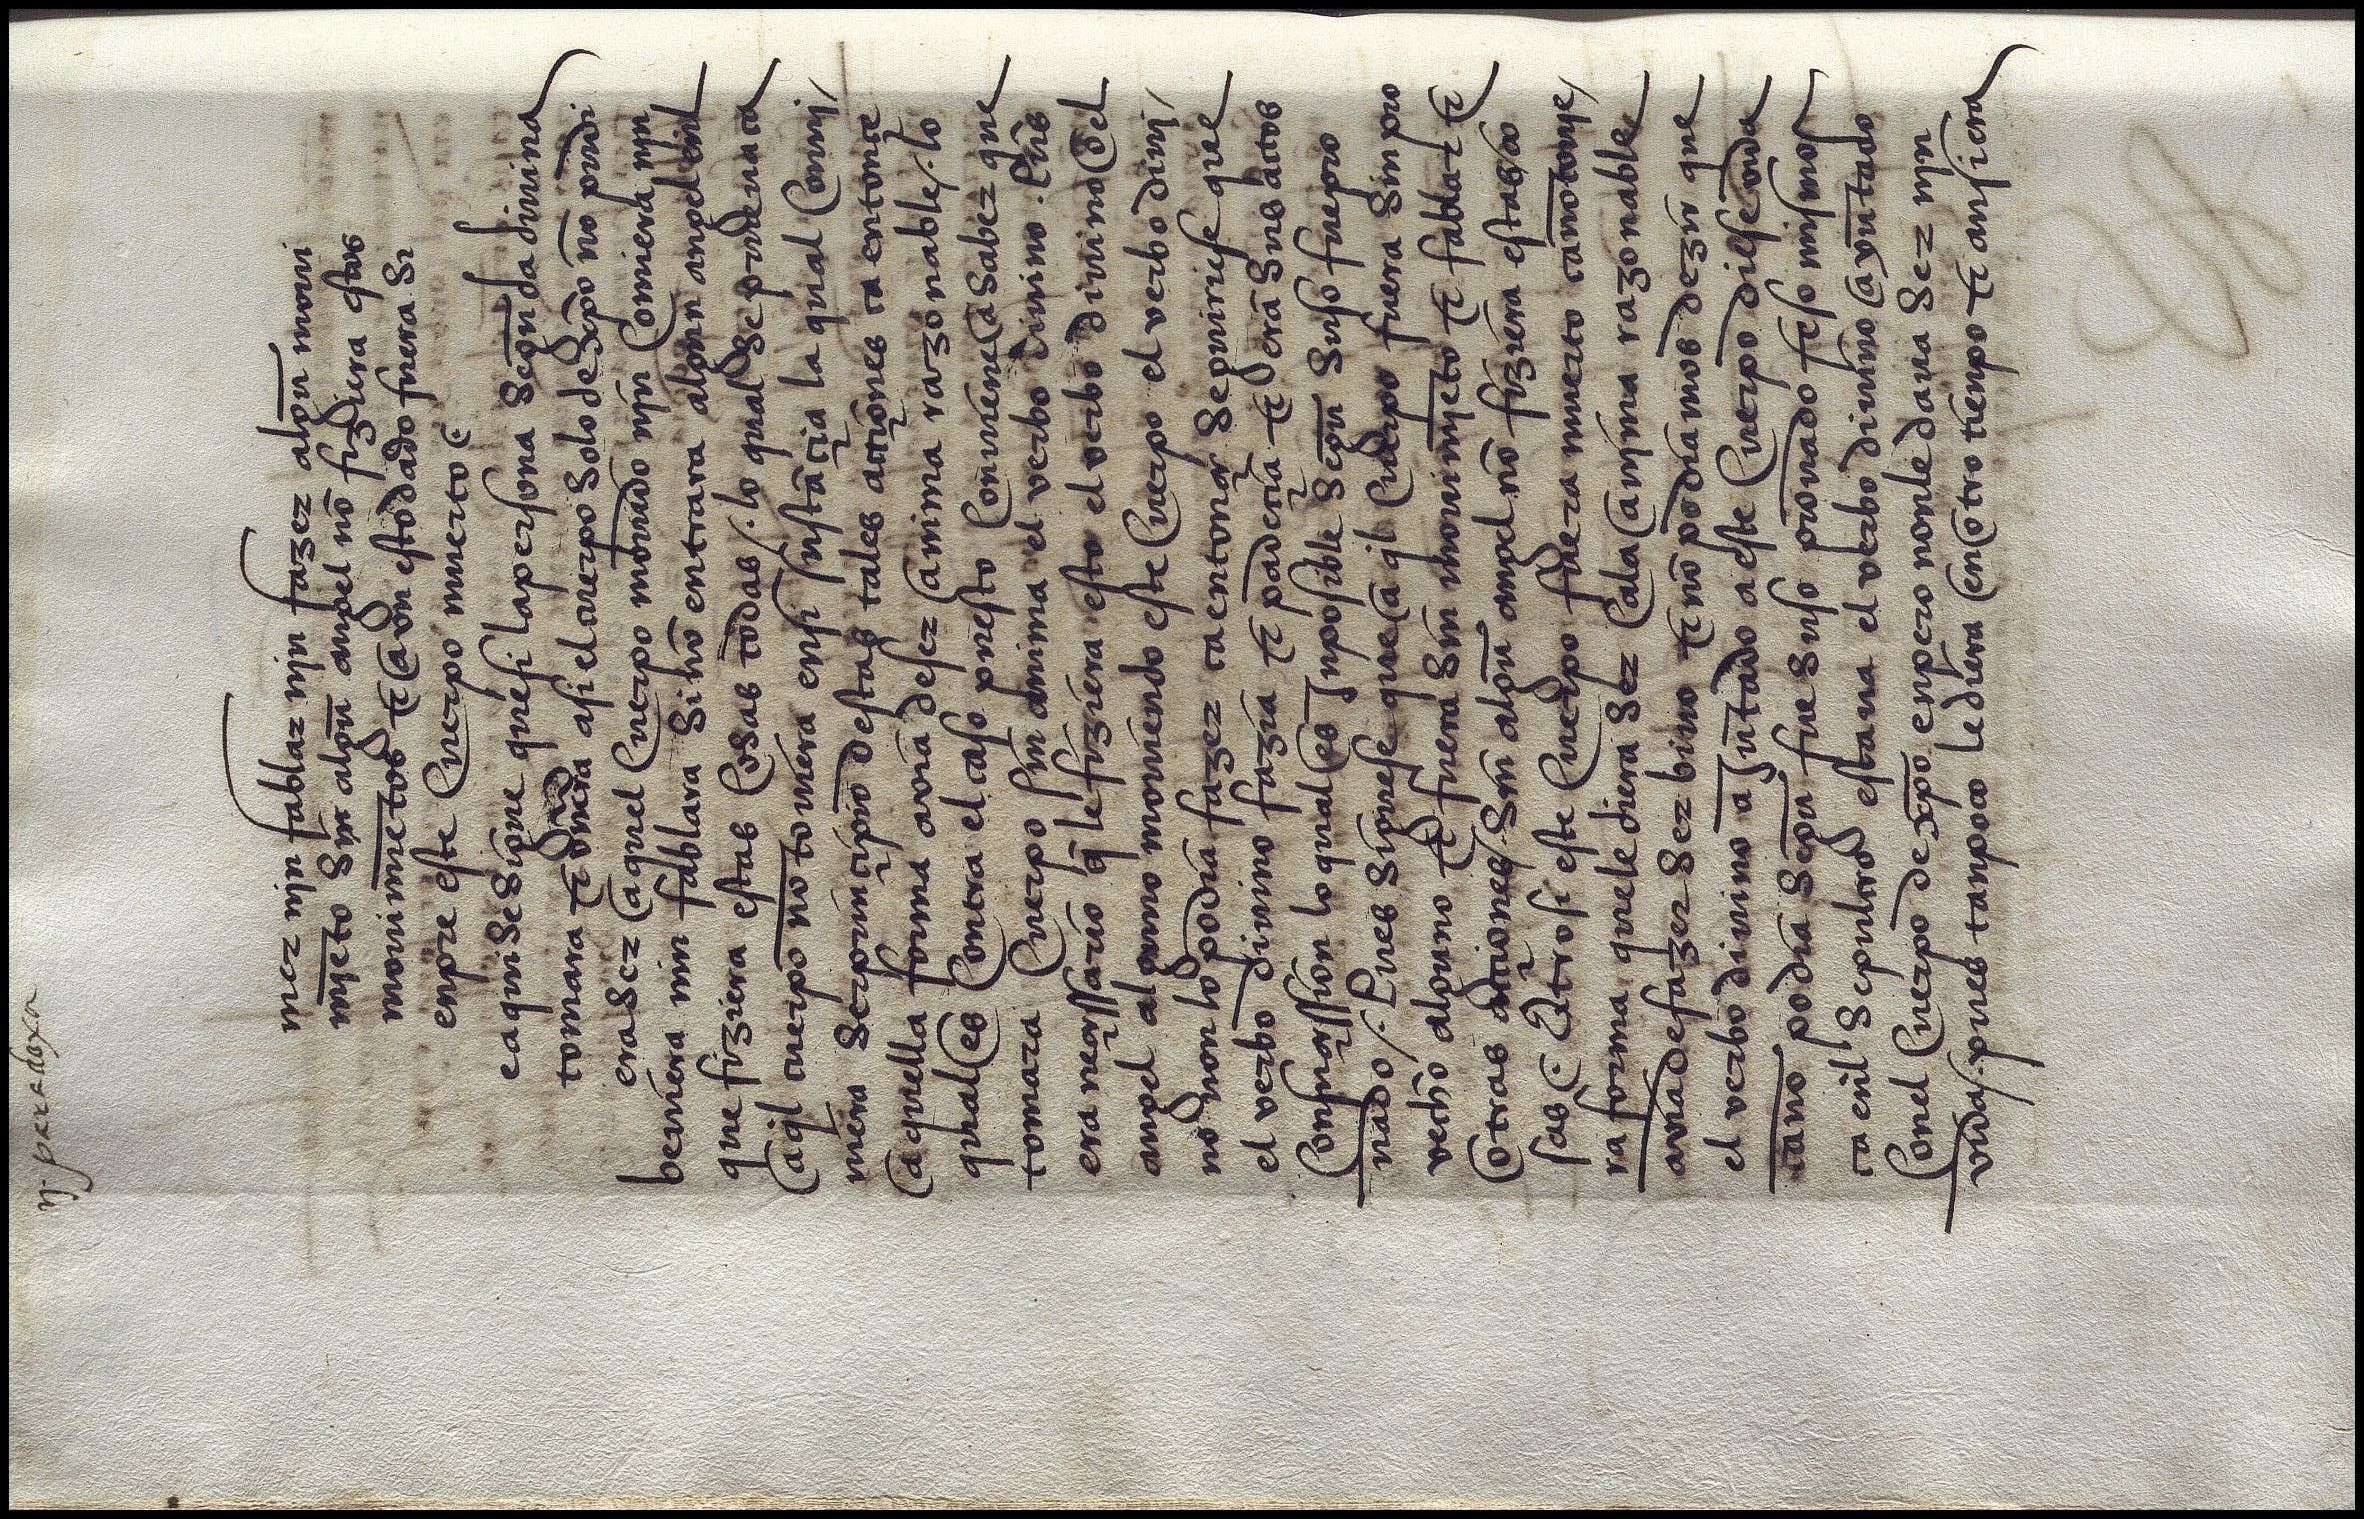 ij. paradoxa
mer njn fablar njn fazer algun̄ movi
mjēto sin algun̄ angel nō fiziera estos
movimiētos τ avn esto dado fuera si
enpre este cuerpo muerto
e aqui se sigue que si la persona segun̄da divina
tomara τ oviera asi el cuerpo solo de xp̄o nō pudi
era ser aquel cuerpo movido njn comiera njn
beviera nin fablara si nō entrara algun angel enl
que fiziera estas cosas todas /. lo qual se prueva ca
aq̄l cuerpo nō toviera en si sustāçia la qual comj/
niera ser prinçipio destas tales acçiones ca entonçe
aquella forma avria de ser anima razonable /. lo
qual es contra el caso puesto conviene a saber que
tomara cuerpo sin anima el verbo divino. Pues
era neçessario q̄ le fiziera esto el verbo divino o el
angel alguno moviendo este cuerpo el verbo divj/
no non lo podia fazer ca entonçe seguiriese que
el verbo divino fazia τ padeçia τ era sus actos
confuession lo qual es Inposible segun suso fue pro
uado /. Pues siguese que aq̄l cuerpo fuera sin pro
vecho alguno τ fuera sin movimjēto τ fabla τ
otras acçiones /. sin algun̄ angel nō fiziera estas co
sas. Otrosi este cuerpo fuera muerto ca nō tovje/
ra forma que le diera ser ca la anjma razonable
avria de fazer ser bivo τ nō podriamos dezir que
el verbo divino ajuntado a este cuerpo diese vida
ca nō podria segun fue suso provado τ eso mismo
ca enl sepulcro estava el verbo divino ayuntado
con el cuerpo de xp̄o enpero non le dava ser njn
vida /. pues tanpoco le diera en otro tienpo τ ansi era